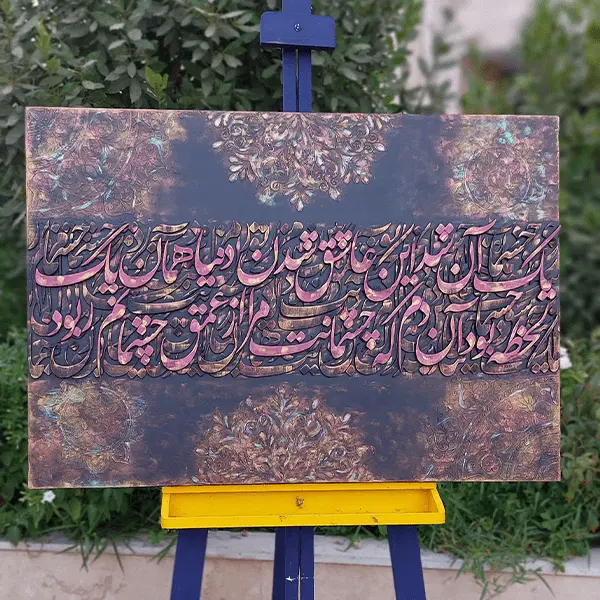 یک آن شد این عاشق شدن دنیا همان یک
لحظه بود آن دم که چشمانت مرا از عمق چشمانم ربود